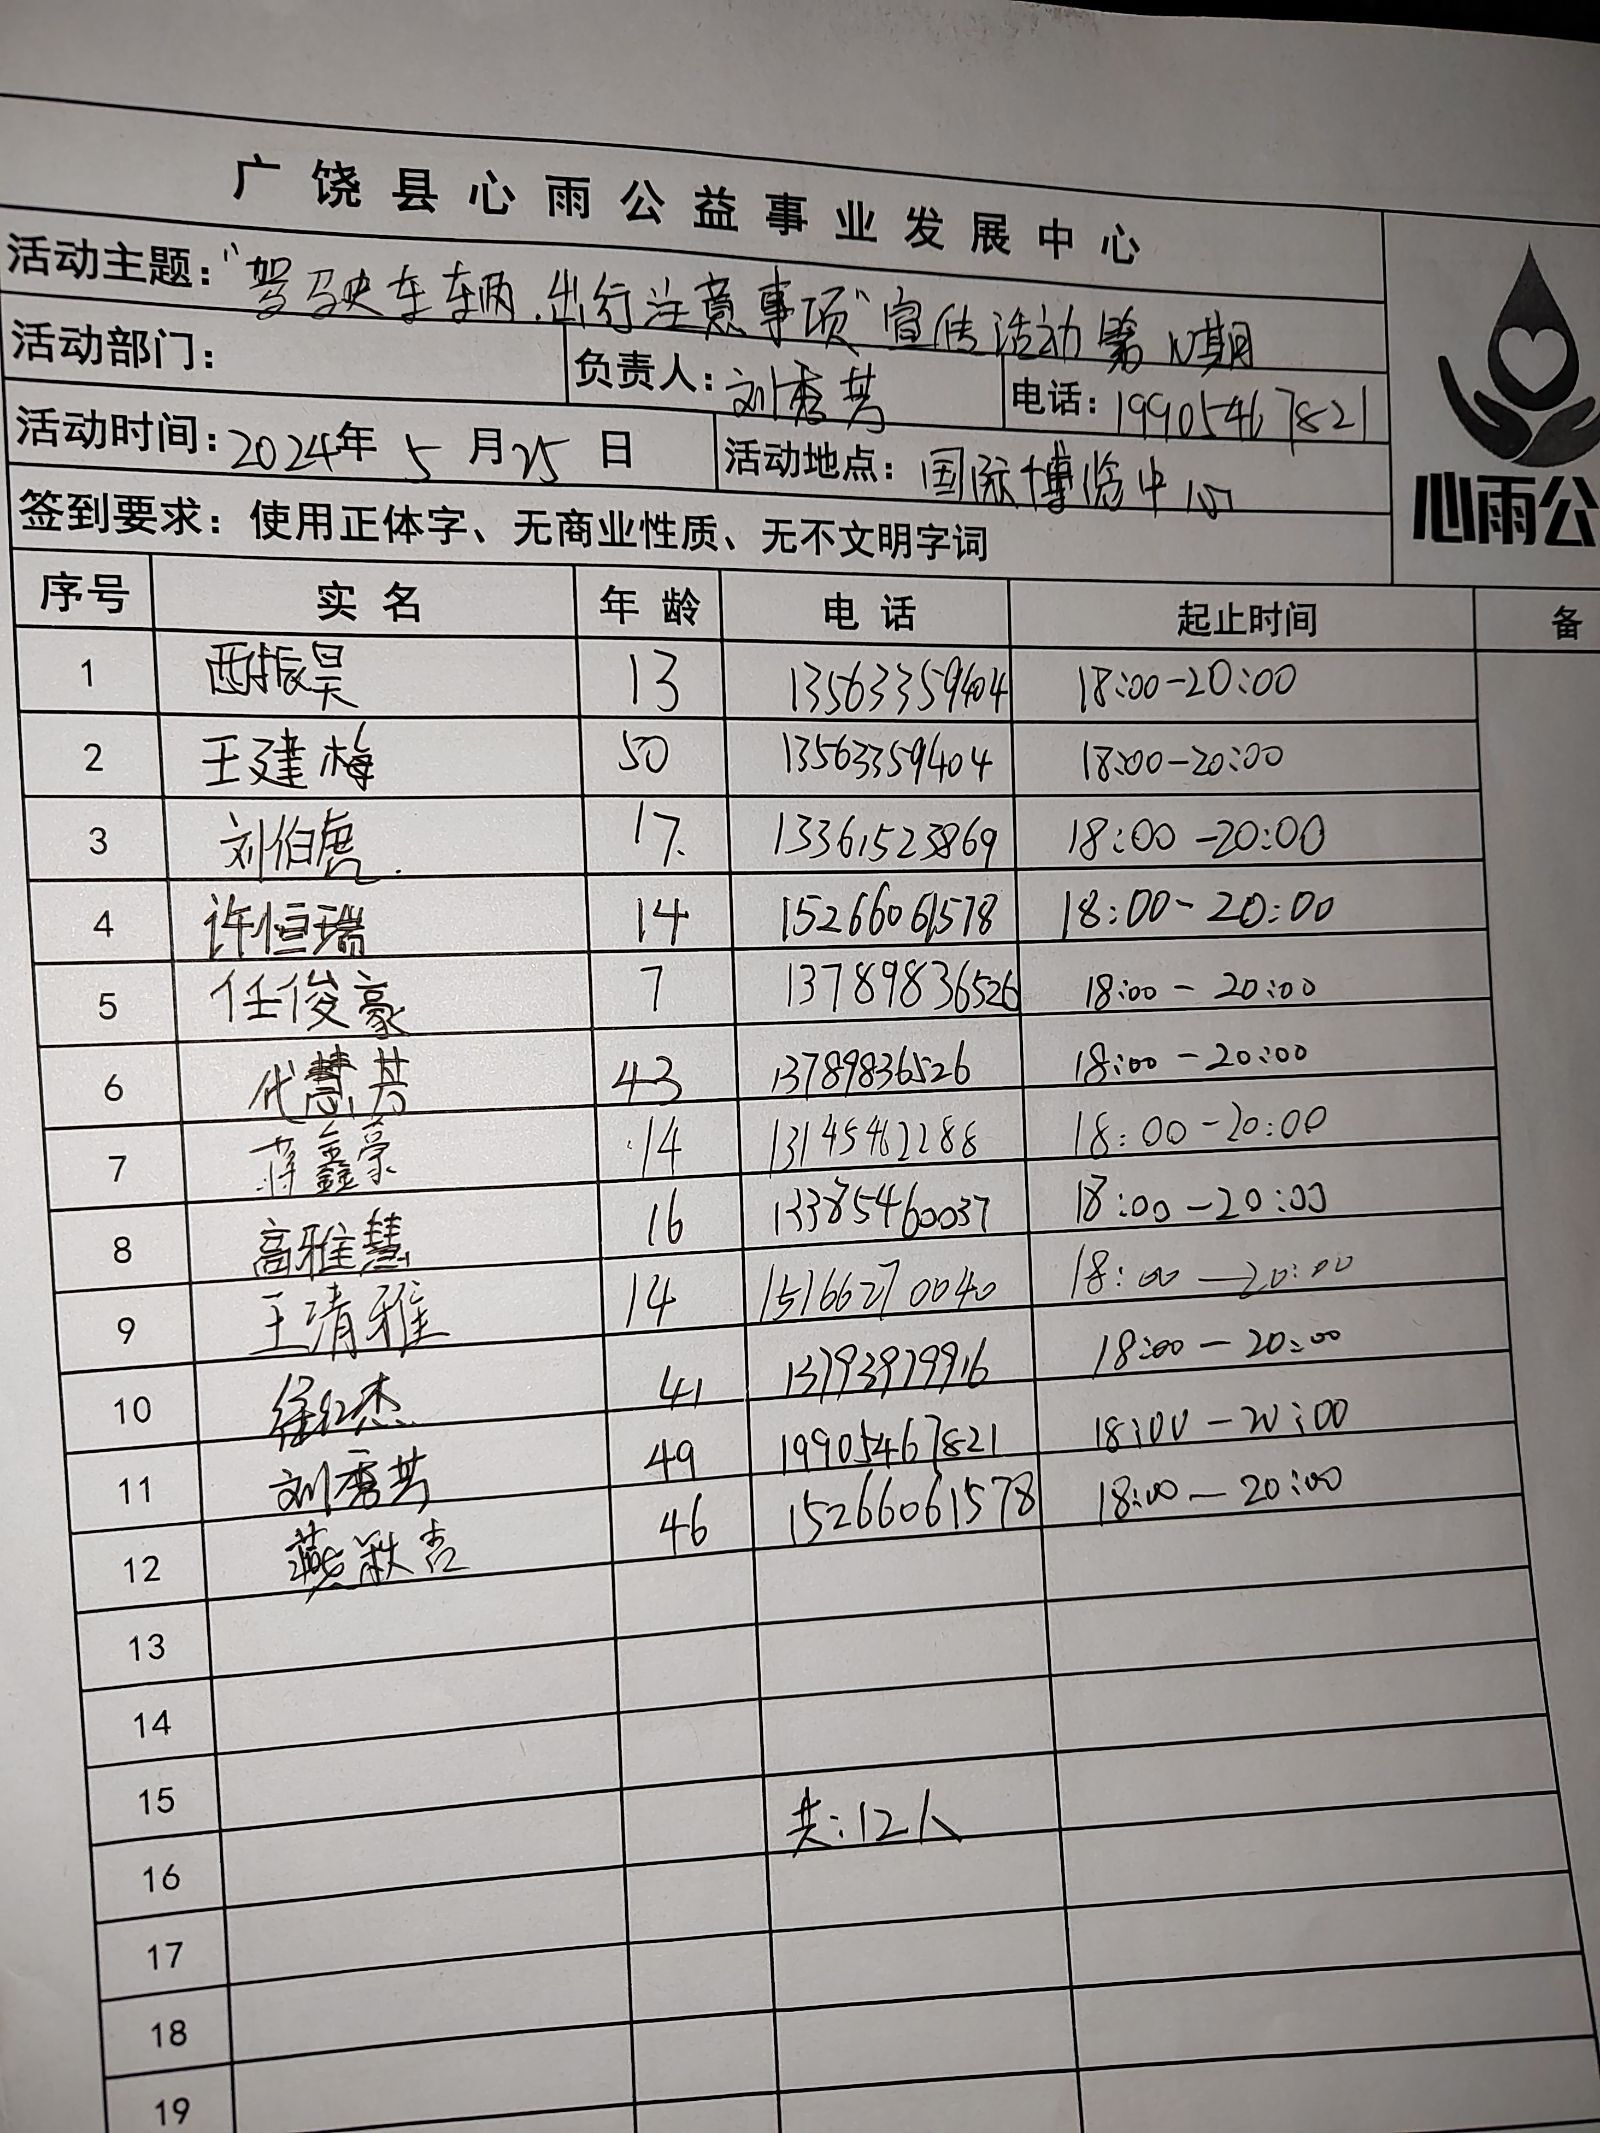 广饶县心雨公益事业发展中心
活动主题："驾驶车辆.出行注意事项"宣传活动第 期
活动部门：
负责人：刘秀芬 电话：19905467821
活动时间：2024年5月25日 活动地点：国际博览中心
心雨公
签到要求：使用正体字、无商业性质、无不文明字词
序号 实名 年龄 电话 起止时间 备
1 西振昊 13 13563359404 18:00-20:00
2 王建梅 50 13563359404 18:00-20:00
3 刘伯虎. 17. 13361523869 18:00-20:00
4 许恒瑞 14 15266061578 18:00-20:00
5 任俊豪 7 13789836526 18:00-20:00
6 代慧芳 43 13789836526 18:00-20:00
7 蒋鑫豪 14 13145462288 18:00-20:00
8 高雅慧 16 13385460037 18:00-20:00
9 王清雅 14 15166270040 18:00-20:00
10 徐红杰 41 13793979916 18:00-20:00
11 刘秀芬 49 19905467821 18:00-20:00
12 46 15266061578 18:00-20:00
13
14
15 共:12人
16
17
18
19